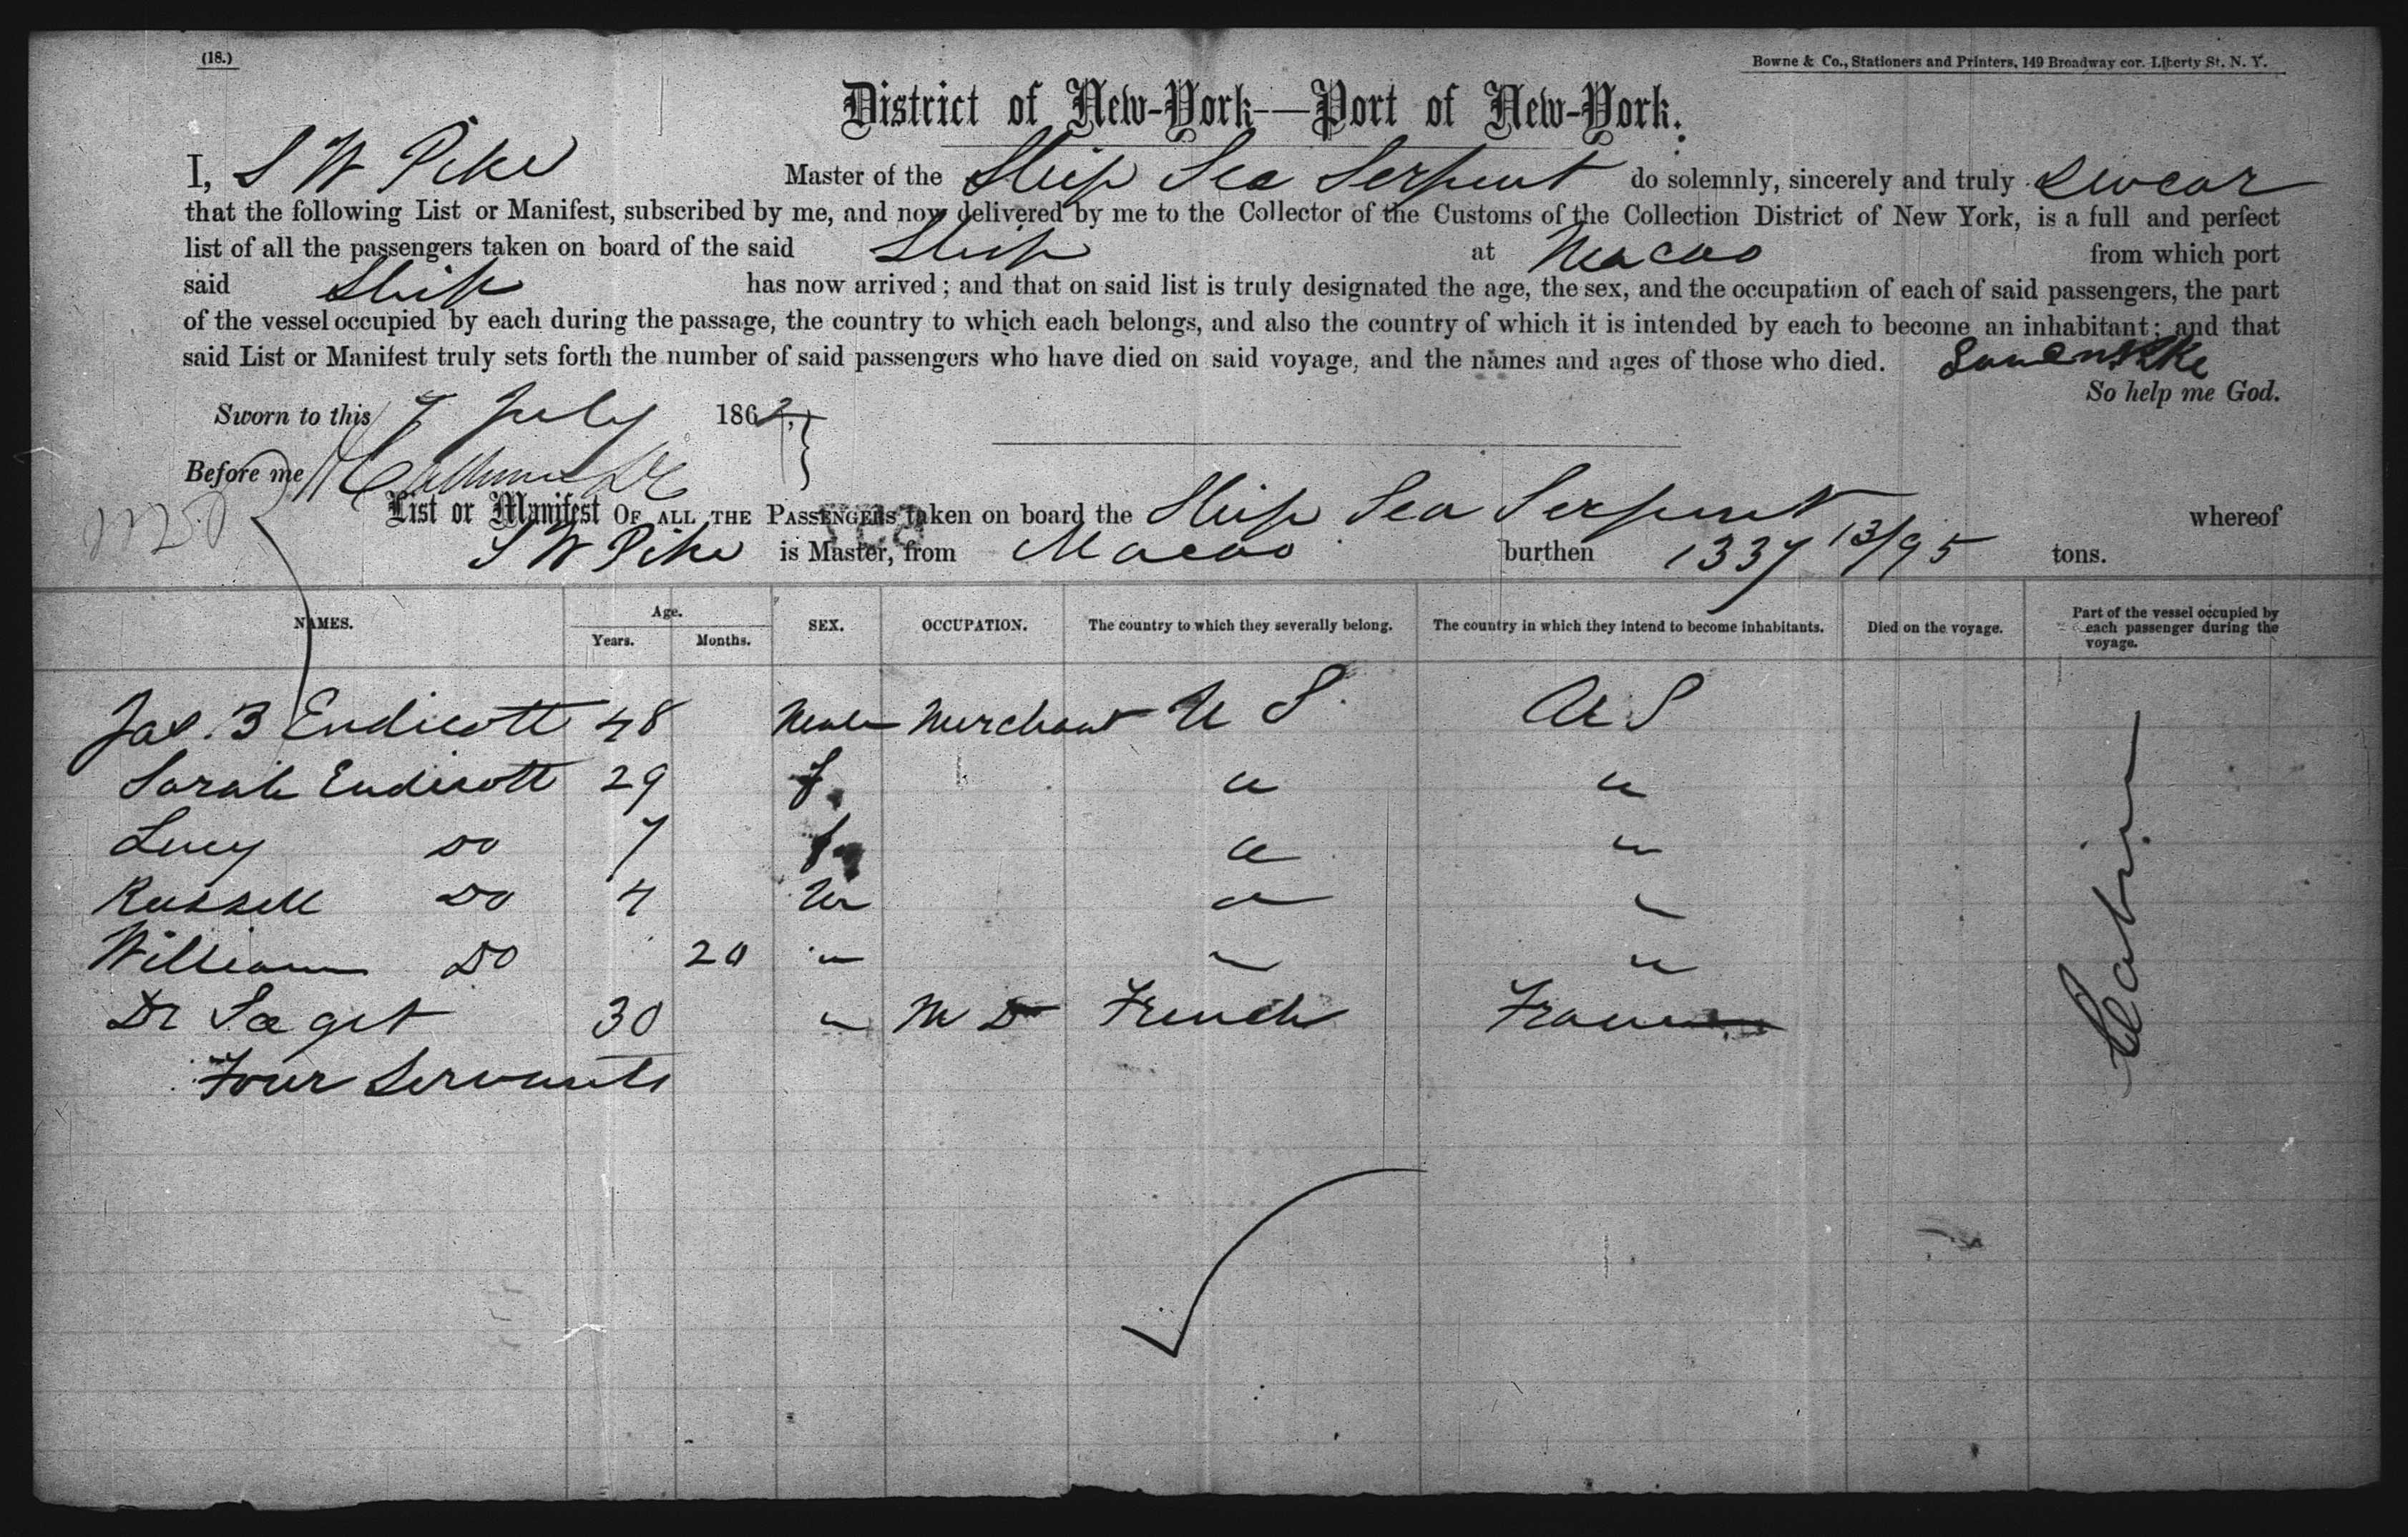 (18.)
Bowne & Co., Stationers and Printers, 149 Broadway cor. Liberty St. N. Y.
District of New-York—Port of New-York.
I, S W Pike Master of the Ship Sea Serpent do solemnly, sincerely and truly swear
that the following List or Manifest, subscribed by me, and now delivered by me to the Collector of the Customs of the Collection District of New York, is a full and perfect
list of all the passengers taken on board of the said Ship at Macao from which port
said Ship has now arrived; and that on said list is truly designated the age, the sex, and the occupation of each of said passengers, the part
of the vessel occupied by each during the passage, the country to which each belongs, and also the country of which it is intended by each to become an inhabitant; and that
said List or Manifest truly sets forth the number of said passengers who have died on said voyage, and the names and ages of those who died.
So help me God.
Sworn to this 7 July 1862,
Before me
List or Manifest OF ALL THE PASSENGERS taken on board the Ship Sea Serpent whereof
S W Pike is Master, from Macao burthen 1337 13/95 tons.
NAMES. Age. Years. Months. SEX. OCCUPATION. The country to which they severally belong. The country in which they intend to become inhabitants. Died on the voyage. Part of the vessel occupied by each passenger during the voyage.
Jas. B Endicott 48 Male Merchant U S. U S
Sarah Endicott 29 f. " "
Lucy Do 7 f. " "
Russell Do 4 M " "
William Do 20 " " "
Dr Saget 30 " M D French France
Four Servants
Cabin